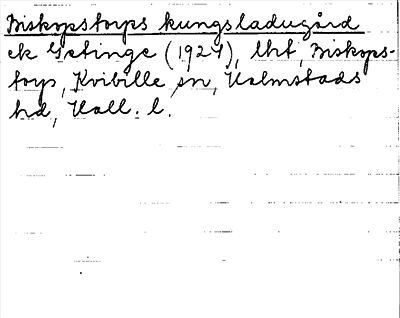 Biskopstorps kungsladugård
ek Getinge (1927), lht, Biskops-
torp, Kvibille sn, Halmstads
hd, Hall. l.